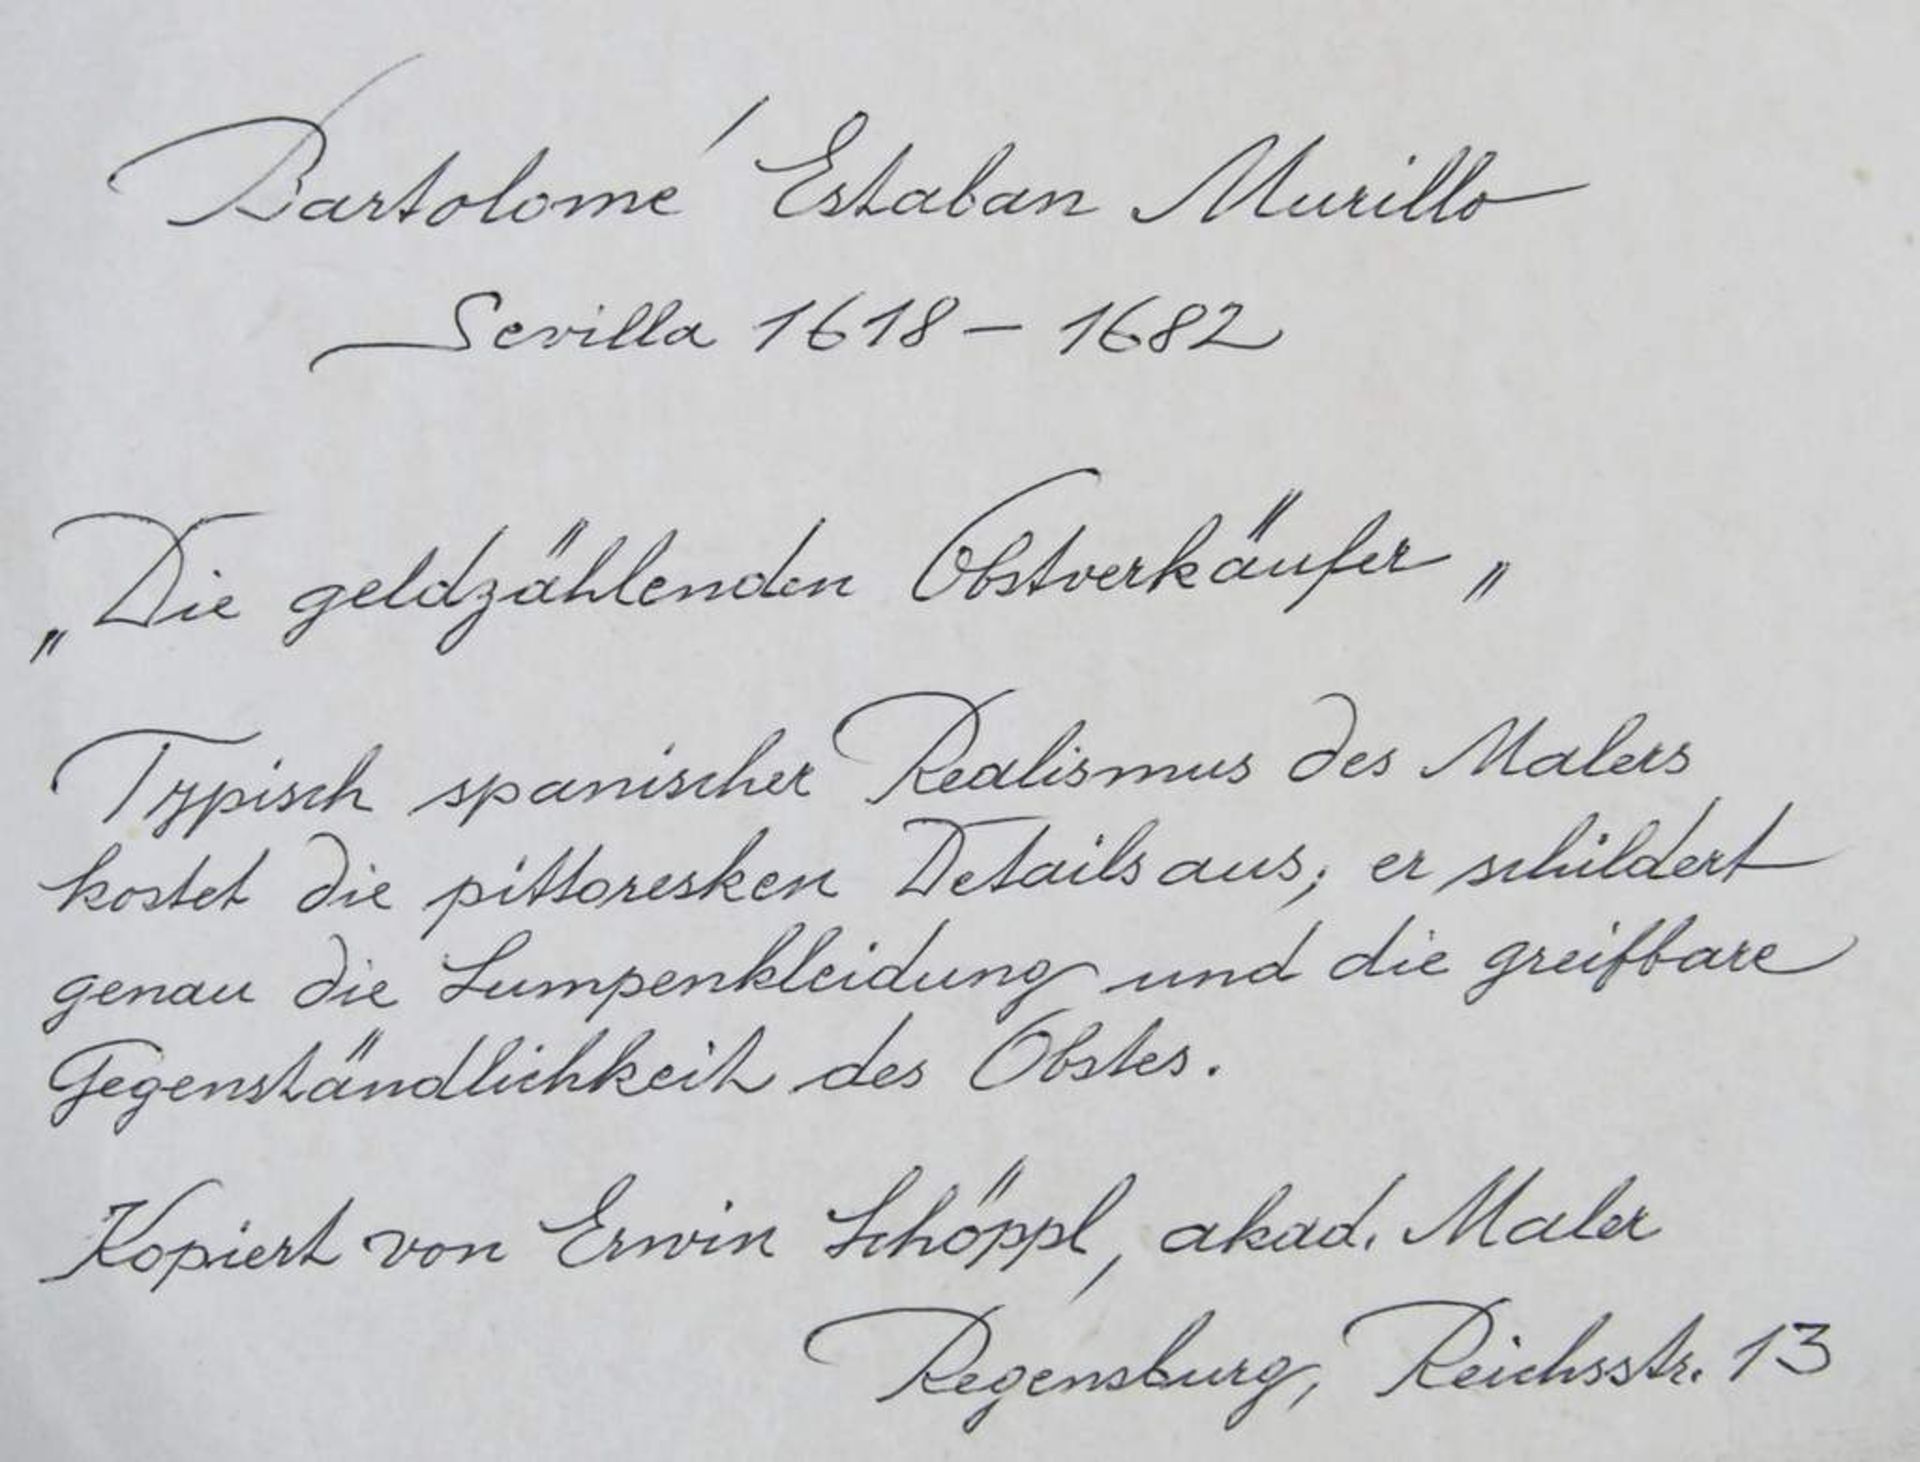 Bartolomé Estaban Murillo
Sevilla 1618 – 1682
„Die geldzählenden Obstverkäufer„
Typisch spanischer Realismus des Malers
kostet die pittoresken Details aus; er schildert
genau die Lumpenkleidung und die greifbare
Gegenständlichkeit des Obstes.
Kopiert von Erwin Schöppl, akad. Maler
Regensburg, Reichsstr. 13